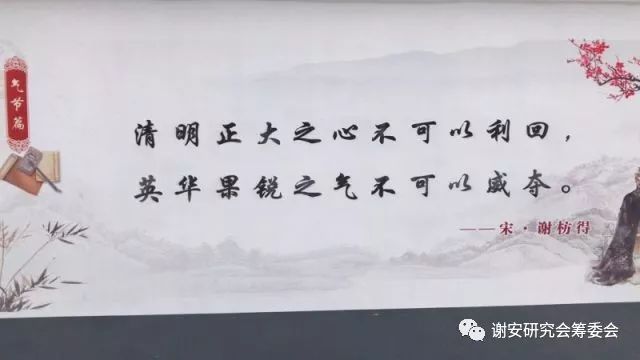 气节篇
清明正大之心不可以利回，
英华果锐之气不可以威夺。
——宋·谢枋得
谢安研究会筹委会